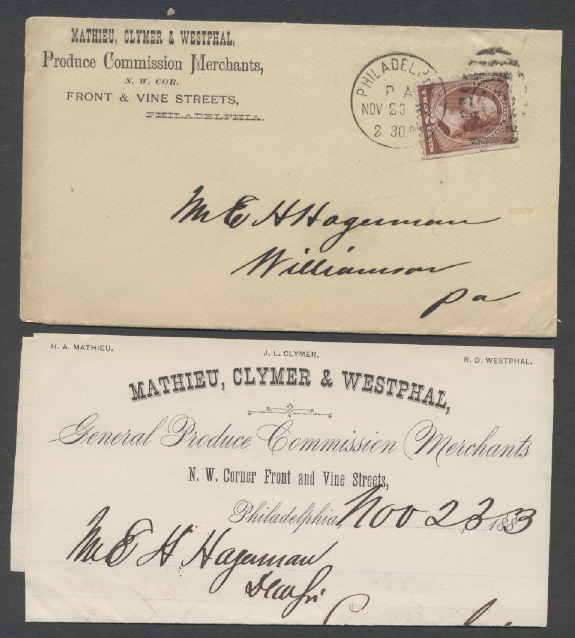 MATHIEU, CLYMER & WESTPHAL,
Produce Commission Merchants,
N. W. COR.
FRONT & VINE STREETS,
PHILADELPHIA.
PHILADELP
PA
NOV 23
2 30P
Mr E H Hagerman
Williamson
Pa
H. A. MATHIEU.
J. L. CLYMER.
R. D. WESTPHAL.
MATHIEU, CLYMER & WESTPHAL,
General Produce Commission Merchants
N. W. Corner Front and Vine Streets,
Philadelphia Nov 23 1883
Mr E H Hagerman
Dear Sir